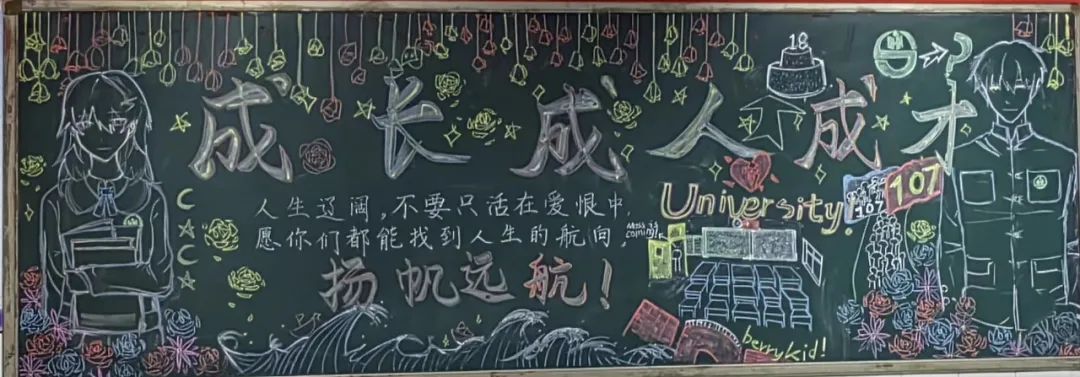 成长成人成才
18
人生辽阔，不要只活在爱恨中，
愿你们都能找到人生的航向，
扬帆远航！
University!
107
107
berrykid!